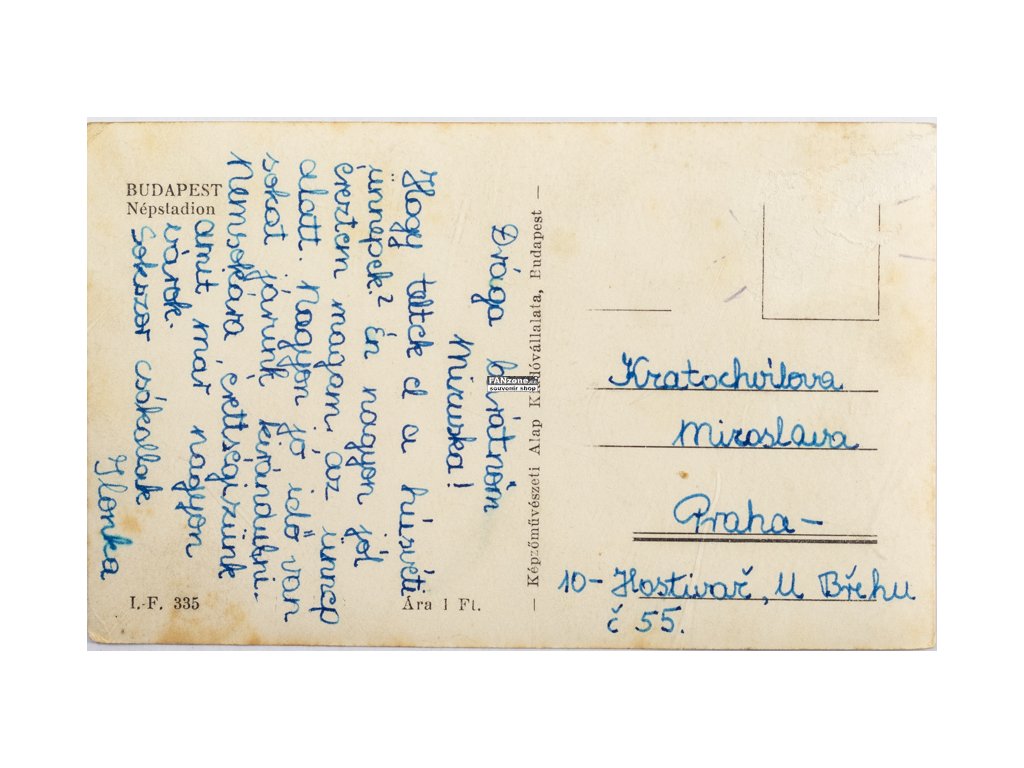 BUDAPEST
Népstadion
Drága barátnőm
Miruska!
Hogy teltek el a húsvéti
ünnepek? Én nagyon jól
éreztem magam az ünnep
alatt. Nagyon jó idő van
sokat járunk kirándulni.
Nemsokára érettségizünk
amit már nagyon
várok.
Sokszor csókollak
Ilonka
I.-F. 335
Ára 1 Ft.
— Képzőművészeti Alap Kiadóvállalata, Budapest —
FANzone
souvenir shop
Kratochvilova
Miroslava
Praha-
10- Hostivař, U Břehu
č 55.